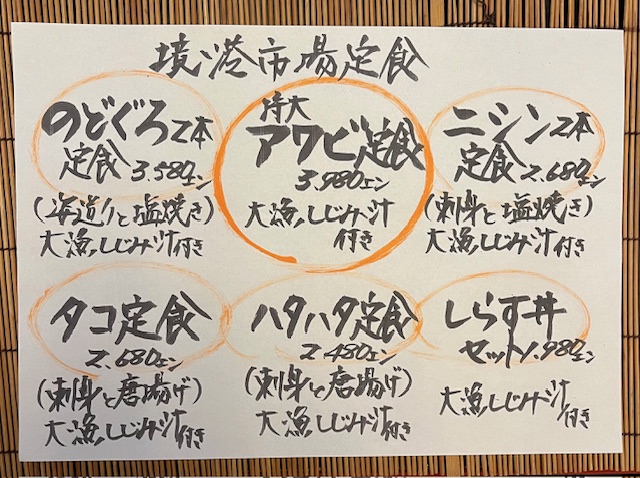 境港市場定食
のどぐろ2本
定食3.580エン
(海道1と塩焼き)
大漁しじみ汁付き
特大
アワビ定食
3.980エン
大漁しじみ汁
付き
ニシン2本
定食2.680エン
(刺身と塩焼き)
大漁しじみ汁付き
タコ定食
2.680エン
(刺身と唐揚げ)
大漁しじみ汁付き
ハタハタ定食
2.480エン
(刺身と唐揚げ)
大漁しじみ汁付き
しらす丼
セット1.980エン
大漁しじみ汁付き